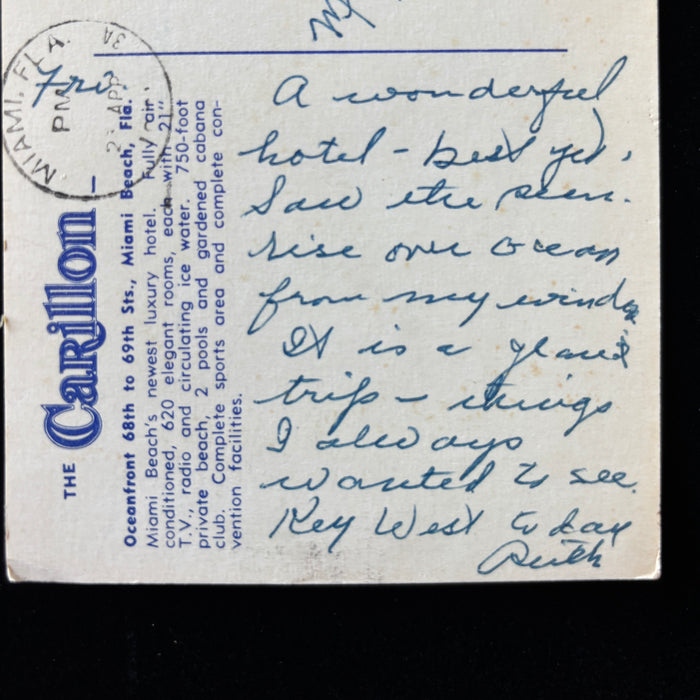 MIAMI, FLA.
PM
APR
3A
Fri.
A wonderful
hotel - best yet.
Saw the sun-
rise over ocean
from my window
It is a grand
trip - things
I always
wanted to see.
Key West today
Ruth
THE Carillon
Oceanfront 68th to 69th Sts., Miami Beach, Fla.
Miami Beach's newest luxury hotel. Fully air
conditioned, 620 elegant rooms, each with 21"
T.V., radio and circulating ice water. 750-foot
private beach, 2 pools and gardened cabana
club. Complete sports area and complete con-
vention facilities.